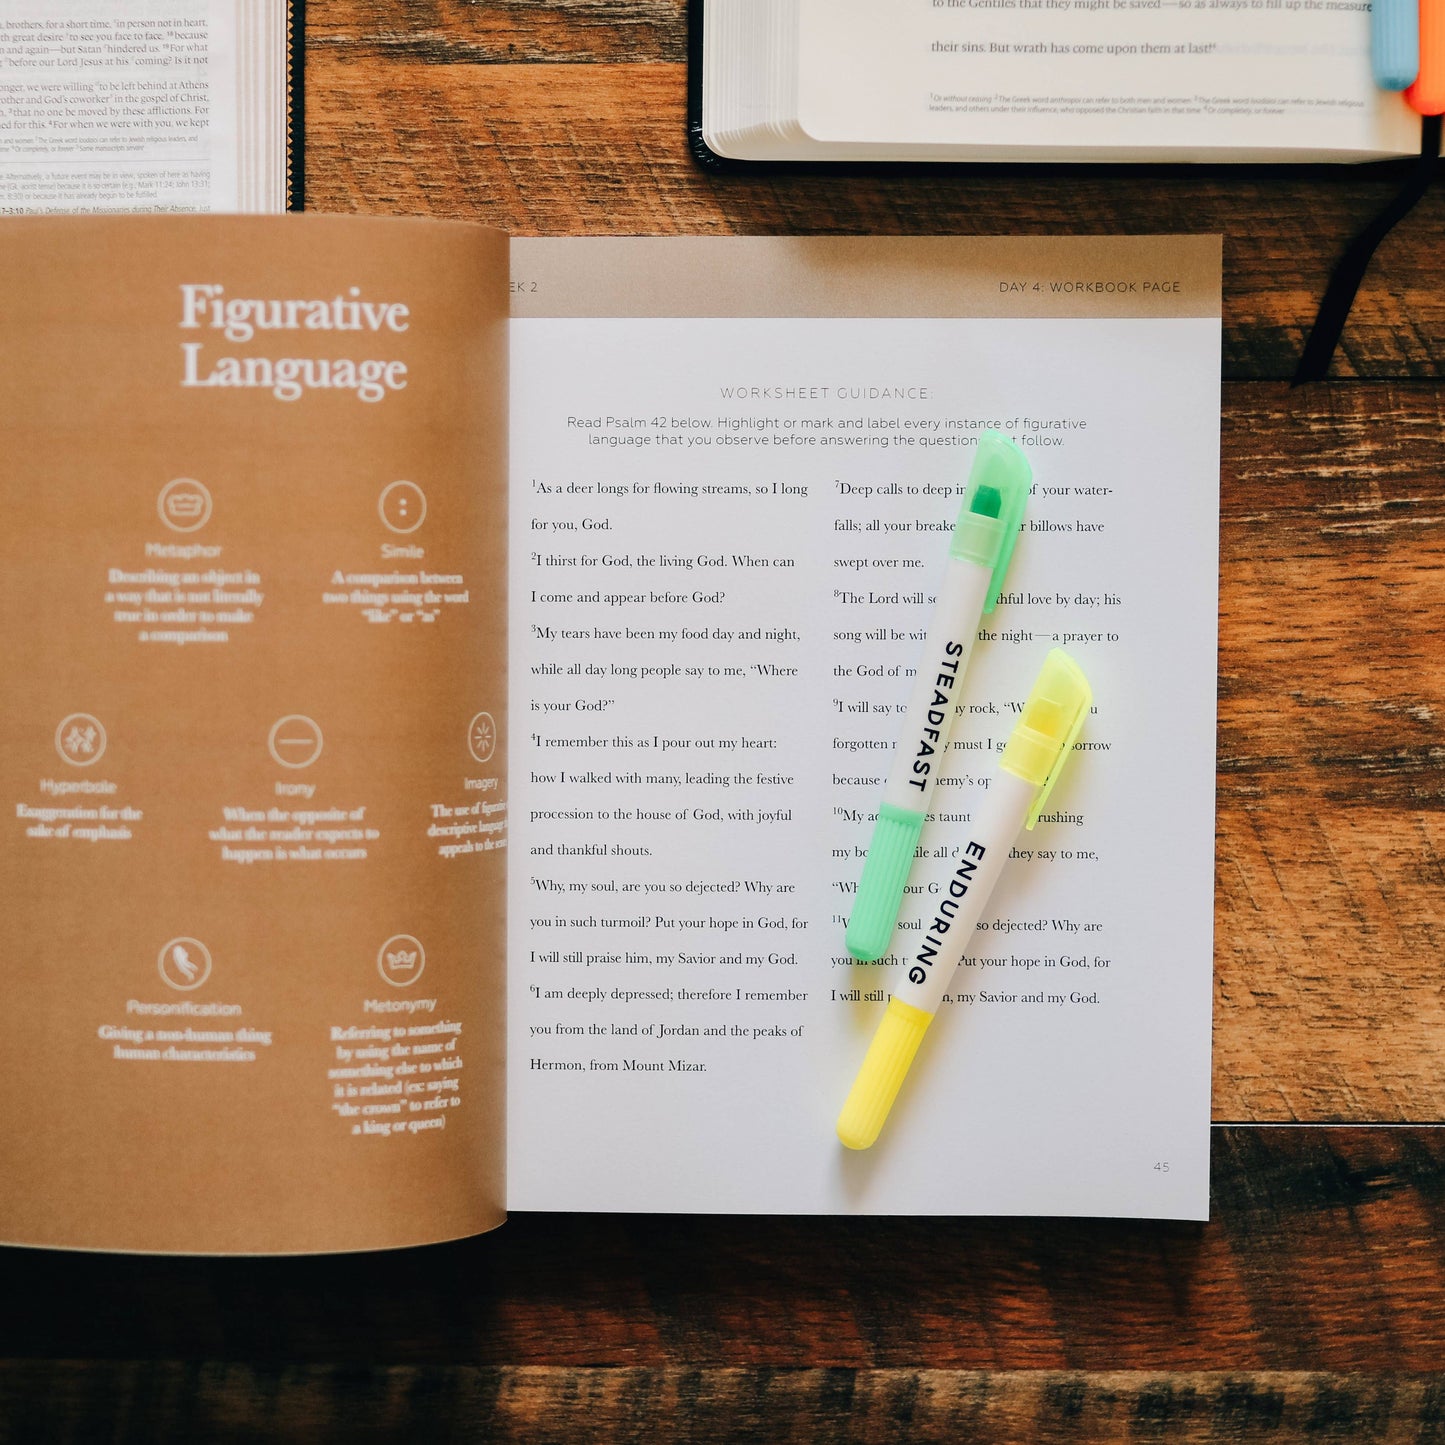 brothers, for a short time, in person not in heart,
th great desire to see you face to face, 18 because
n and again—but Satan hindered us. 19 For what
before our Lord Jesus at his coming? Is it not
onger, we were willing to be left behind at Athens
rother and God's coworker in the gospel of Christ,
3 that no one be moved by these afflictions. For
ed for this. 4 For when we were with you, we kept
Alternatively, a future event may be in view, spoken of here as having
because it is so certain (e.g., Mark 11:24; John 13:31;
8:30) or because it has already begun to be fulfilled.
Paul's Defense of the Missionaries during Their Absence.
to the Gentiles that they might be saved—so as always to fill up the measure
their sins. But wrath has come upon them at last!
1 Or without ceasing 2 The Greek word anthropoi can refer to both men and women 3 The Greek word Ioudaioi can refer to Jewish religious
leaders, and others under their influence, who opposed the Christian faith in that time 4 Or completely, or forever
Figurative
Language
Metaphor
Describing an object in
a way that is not literally
true in order to make
a comparison
Simile
A comparison between
two things using the word
"like" or "as"
Hyperbole
Exaggeration for the
sake of emphasis
Irony
When the opposite of
what the reader expects to
happen is what occurs
Imagery
The use of
descriptive language
appeals to the
Personification
Giving a non-human thing
human characteristics
Metonymy
Referring to something
by using the name of
something else to which
it is related (ex: saying
"the crown" to refer to
a king or queen)
EK 2
DAY 4: WORKBOOK PAGE
WORKSHEET GUIDANCE:
Read Psalm 42 below. Highlight or mark and label every instance of figurative
language that you observe before answering the question t follow.
1 As a deer longs for flowing streams, so I long
for you, God.
2 I thirst for God, the living God. When can
I come and appear before God?
3 My tears have been my food day and night,
while all day long people say to me, “Where
is your God?”
4 I remember this as I pour out my heart:
how I walked with many, leading the festive
procession to the house of God, with joyful
and thankful shouts.
5 Why, my soul, are you so dejected? Why are
you in such turmoil? Put your hope in God, for
I will still praise him, my Savior and my God.
6 I am deeply depressed; therefore I remember
you from the land of Jordan and the peaks of
Hermon, from Mount Mizar.
7 Deep calls to deep in of your water-
falls; all your breake r billows have
swept over me.
8 The Lord will se thful love by day; his
song will be wit the night—a prayer to
the God of m
9 I will say to my rock, “W u
forgotten must I go sorrow
because emy’s op
10 My ad es taunt rushing
my bo ile all d they say to me,
“Wh our G
11 W soul so dejected? Why are
you in such t Put your hope in God, for
I will still m, my Savior and my God.
45
STEADFAST
ENDURING